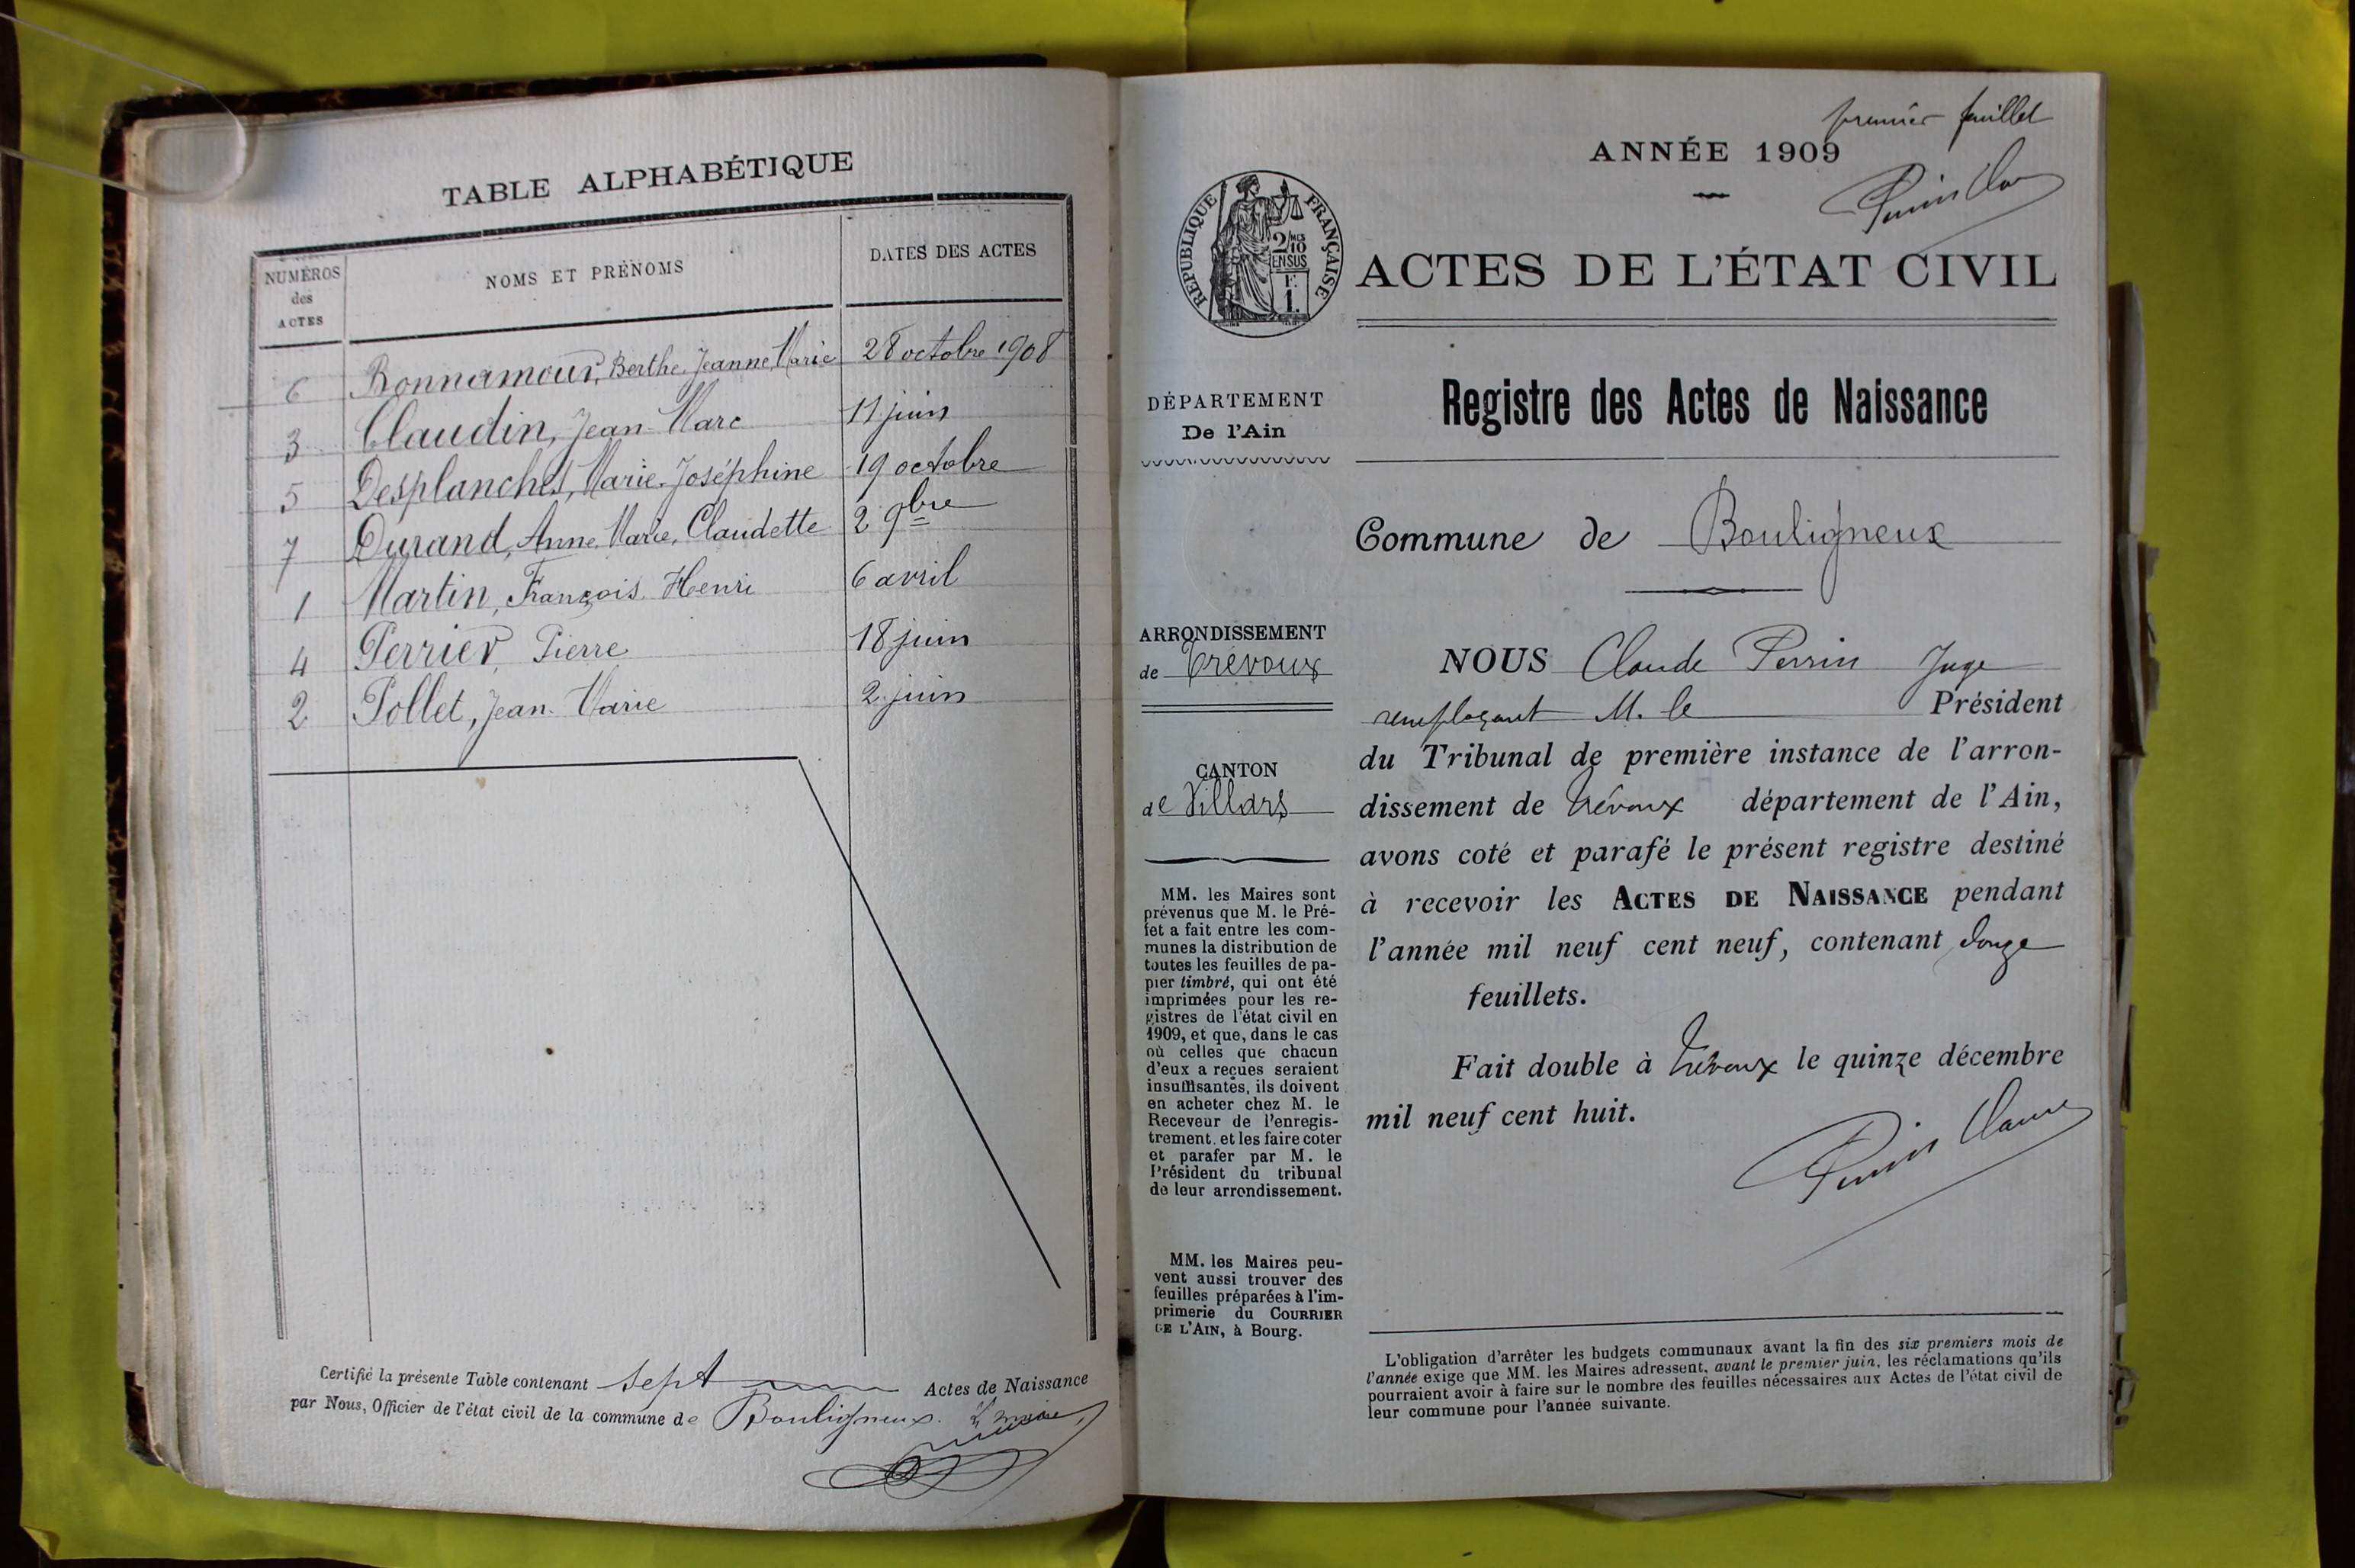 TABLE ALPHABÉTIQUE
NUMÉROS des ACTES NOMS ET PRÉNOMS DATES DES ACTES
6 Bonnamour, Berthe Jeanne Marie 28 octobre 1908
3 Claudin, Jean-Marc 11 juin
5 Desplanches, Marie-Joséphine 19 octobre
7 Durand, Anne, Marie, Claudette 2 9bre
1 Martin, François Henri 6 avril
4 Perrier, Pierre 18 juin
2 Pollet, Jean-Marie 2 juin
Certifié la présente Table contenant sept Actes de Naissance
par Nous, Officier de l'état civil de la commune de Bouligneux. Le maire
premier feuillet
ANNÉE 1909
RÉPUBLIQUE FRANÇAISE
2/MES
10
EN SUS
1 F.
ACTES DE L'ÉTAT CIVIL
Registre des Actes de Naissance
DÉPARTEMENT
De l'Ain
Commune de Bouligneux
ARRONDISSEMENT
de Trévoux
CANTON
de Villars
MM. les Maires sont
prévenus que M. le Pré-
fet a fait entre les com-
munes la distribution de
toutes les feuilles de pa-
pier timbré, qui ont été
imprimées pour les re-
gistres de l'état civil en
1909, et que, dans le cas
où celles que chacun
d'eux a reçues seraient
insuffisantes, ils doivent
en acheter chez M. le
Receveur de l'enregis-
trement. et les faire coter
et parafer par M. le
Président du tribunal
de leur arrondissement.
MM. les Maires peu-
vent aussi trouver des
feuilles préparées à l'im-
primerie du COURRIER
DE L'AIN, à Bourg.
NOUS Claude Perrin Juge
remplaçant M. le Président
du Tribunal de première instance de l'arron-
dissement de Trévoux département de l'Ain,
avons coté et parafé le présent registre destiné
à recevoir les ACTES DE NAISSANCE pendant
l'année mil neuf cent neuf, contenant douze
feuillets.
Fait double à Trévoux le quinze décembre
mil neuf cent huit.
Perrin Claude
L'obligation d'arrêter les budgets communaux avant la fin des six premiers mois de
l'année exige que MM. les Maires adressent, avant le premier juin, les réclamations qu'ils
pourraient avoir à faire sur le nombre des feuilles nécessaires aux Actes de l'état civil de
leur commune pour l'année suivante.